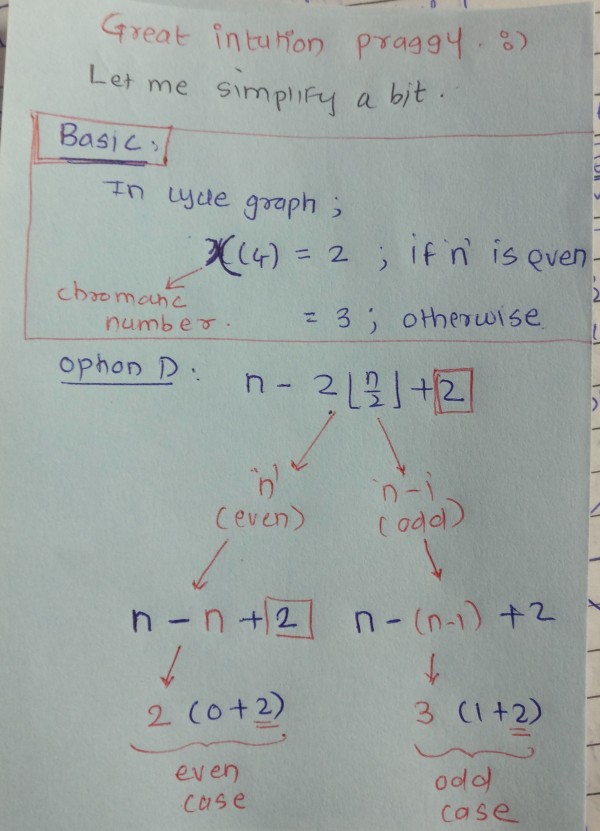 Great intution praggy. :)
Let me simplify a bit.
Basic:
In cycle graph ;
χ(4) = 2 ; if 'n' is even
chromatic
number.
= 3 ; otherwise
option D :
n - 2⌊n/2⌋ + 2
'n' n-1
(even) (odd)
n - n + 2 n - (n-1) + 2
2 (0+2) 3 (1+2)
even odd
case case